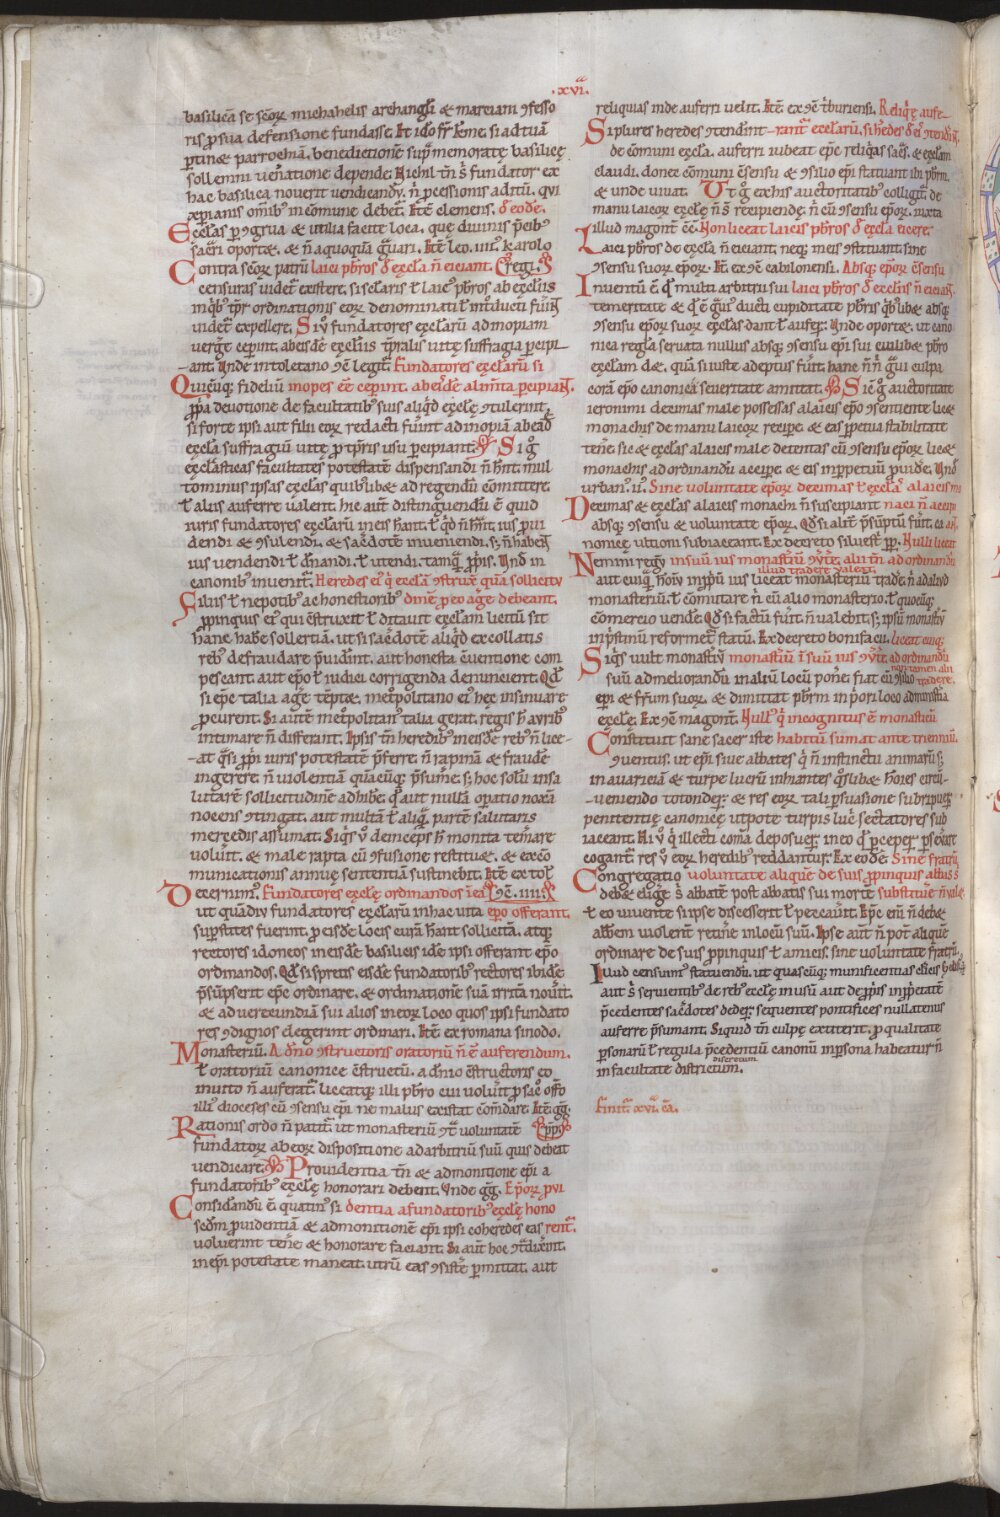 .xvi.
basilicã se sc̃orꝝ michahelis archangl̃i & marciani ꝯfesso
ris ꝓ sua defensione fundasse. It̃ ido fr̃ k̃me. si ad tuã
ꝑtin& parrochiã. benedictionẽ sup̃ memoratę basilicę
sollemni ueñatione depende. Nichil tñ s̃ fundator ex
hac basilica nouerit uendicandũ. ñ ꝓcessionis aditũ. qui
xp̃ianis om̃ib; in cõmune debet̃. It̃e clemens. d̃ eodẽ.
Eccl̃as ꝑ ꝯgrua & utilia facite loca. quę diuinis p̃cib;
sacr̃i oport&. & ñ a quoquã g̃uari. It̃e leo .iiii. karolo
Contra sc̃orꝝ patrũ laici pb̃ros d̃ ęccl̃a ñ eiciant. regi.
censuras uidet̃ existere. si sclaris ł laic; pb̃ros ab ęccl̃iis
in q̃b; tp̃r ordinationis eorꝝ denominati ł int̃ducti fũint
uidet̃ expellere. Si ỹ fundatores ęccl̃arũ ad inopiam
uergẽ cep̃int. ab eisdẽ ęccl̃iis tp̃ralis uitę suffragia ꝑcipi
ant. Unde in toletano ꝯc̃ legit̃. Fundatores ęccl̃arũ si
Quicũq; fideliũ inopes eẽ cep̃int. ab eisdẽ alim̃ta ꝑcipiant.
ꝓp̃a deuotione de facultatib; suis aliq̃d ęccl̃ę ꝯtulerint.
si forte ipsi aut filii eorꝝ redacti fũint ad inopiã ab ead̃
ęccl̃a suffragiũ uitę ꝓ tp̃ris usu ꝑcipiant. Si g̃
ęccl̃asticas facultates potestatẽ dispensandi ñ hñt. mul
to minus ipsas ęccl̃as quib;lib& ad regendũ cõmittere.
ł aliis auferre ualent. hic aut̃ distinguendũ ẽ quid
iuris fundatores ęccl̃arũ in eis hãnt. ł q̃d ñ hñt. ius ꝓui
dendi & ꝯsulendi. & sac̃dotẽ inueniendi. s; ñ habent
ius uendendi ł dñandi. ł utendi. tamq̃ ꝓp̃is. Und̃ in
canonib; inuenit̃. Heredes ei; q̃ ęccl̃iã ꝯstrux̃. quã solliciti
Filiis ł nepotib; ac honestiorib; d̃i nẽ ꝓ eo agẽ debeant.
ꝓpinquis ei; qui c̃struxit ł ditauit ęccl̃am licitũ sit
hanc habẽ sollertiã. ut si sac̃dotẽ aliq̃d ex collatis
reb; defraudare p̃uid̃int. aut honesta c̃uentione com
pescant. aut ep̃o ł iudici corrigenda denuncient. Qd̃
si ep̃c talia ag̃e tẽpt&. met̃politano ei; hec insinuare
ꝓcurent. Si autẽ met̃politan; talia gerat. regis h̃ aurib;
intimare ñ differant. Ipsis tñ heredib; in eisd̃e reb; ñ lice
at q̃si ꝓp̃i iuris potestatẽ p̃ferre. ñ rapinã & fraudẽ
ingerere. ñ uiolentiã quãcũq; p̃sumẽ. s; hoc solũ in sa
lutarẽ sollicitudinẽ adhibẽ. q̃ aut nullã oꝑatio noxã
nocens ꝯtingat. aut multã ł aliq̃ partẽ salutaris
mercedis assũmat. Siq̃s ỹ deinceps h̃ monita tem̃are
uolũit. & male rapta cũ ꝯfusione restitu&. & exco
municationis annuę sententiã sustinebit. It̃e ex tol̃
Decernim;. Fundatores ęccl̃ę ordinandos in ea ꝯc̃. iiii.
ut quãdiu fundatores ęccl̃arũ in hac uita ep̃o offerant.
suꝑstites fuerint. ꝓ eisdẽ locis curã hãnt sollicitã. atq;
rectores idoneos in eisdẽ basilicis idẽ ipsi offerant ep̃o
ordinandos. Qd̃ si spretis eisdẽ fundatorib; rectores ibidẽ
p̃sũpserit ep̃c ordinare. & ordinationẽ suã irritã nouit.
& ad uerecundiã sui alios in eorꝝ loco quos ipsi fundato
res ꝯdignos elegerint ordinari. It̃e ex romana sinodo.
Monasteriũ. A dño ꝯstructoris oratoriũ ñ ẽ auferendum.
ł oratoriũ canonice c̃structũ. a dñio c̃structoris eo
inuito ñ auferat̃. liceatq; illi pb̃ro cui uolũit ꝓ sac̃o off̃o
illi; dioceses cũ ꝯsensu ep̃i ne malus existat cõmdare. It̃e gg̃.
Rationis ordo ñ patit̃. ut monasteriũ ꝯt̃ uoluntatẽ
fundatorꝝ ab eorꝝ dispositione ad arbitriũ suũ quis debeat
uendicare. Prouidentia tñ & admonitione ep̃i a
fundatorib; ęccl̃ę honorari debent. Unde gg̃. Ep̃orꝝ ꝓui
Considandũ ẽ quatin; si dentia a fundatorib; ęccl̃ę hono
sc̃dm ꝓuidentiã & admonitionẽ ep̃i ipsi coheredes eas rent̃.
uoluerint tenẽ & honorare faciant. Si aut̃ hoc ꝯt̃dix̃int.
in ep̃i potestate maneat. utrũ eas ꝯsistẽ ꝑmittat. aut
reliquias inde auferri uelit. It̃e ex ꝯc̃ t̃buriensi. Reliq̃ę aufe
Si plures heredes ꝯtend̃int rant̃ ęccl̃arũ. si h̃edes d̃ ei; ꝯtendũt.
de cõmuni ęccl̃a. auferri iubeat ep̃c reliq̃as sac̃s. & ęccl̃am
claudi. donec cõmuni c̃sensu & ꝯsilio ep̃i statuant ibi pb̃rm.
& unde uiuat. Ut g̃ ex his auctoritatib; colligit̃. de
manu laicorꝝ ęccl̃ę ñ s̃ recipiendę. ñ cũ ꝯsensu ep̃orꝝ. iuxta
illud magont̃ c̃c̃. Non liceat laicis pb̃ros d̃ ęccl̃a eicere.
Laici pb̃ros de ęccl̃a ñ eiciant. neq; in eis ꝯstituant. sine
ꝯsensu suorꝝ ep̃orꝝ. It̃ ex ꝯc̃ cabilonensi. Absq; ep̃orꝝ c̃sensu
Inuentũ ẽ q̃ multi arbitrii sui laici pb̃ros d̃ ęccl̃iis ñ eiciant.
temeritate. & q̃ ẽ g̃ui; ducti cupiditate pb̃ris q̃b;lib& absq;
ꝯsensu ep̃orꝝ suorꝝ ęccl̃as dant ł aufer̃. Unde oport&. ut cano
nica regl̃a seruata nullus absq; ꝯsensu ep̃i sui cuilib& pb̃ro
ęccl̃am d&. quã si iuste adeptus fũit. hanc ñ ñ g̃ui culpa
corã ep̃o canonica seueritate amittat. Sic g̃ auctoritate
ieronimi decimas male possessas a laicis ep̃o ꝯsentiente lic&
monachis de manu laicorꝝ recipe. & eas ꝑpetua stabilitate
teñe. sic & ęccl̃as a laicis male detentas cũ ꝯsensu ep̃orꝝ lic&
monachis ad ordinandũ accipe. & eis in ꝑpetuũ ꝓuidẽ. Und̃
urban; .ii. Sine uoluntate ep̃orꝝ decimas ł ęccl̃as a laicis mo
Decimas & ęccl̃as a laicis monachi ñ suscipiant nachi ñ accipiant
absq; ꝯsensu & uoluntate ep̃orꝝ. Qd̃ si alit̃ p̃sũptũ fũit. ca
nonicę ultioni subiaceant. Ex decreto siluest̃ pp̃. Nulli liceat
Nemini regũ in suũ ius monast̃iũ ꝯũt̃e. alii tñ ad ordinandũ
illud tradere ualeat.
aut cuiq̃ hom̃i in ꝓp̃ũ ius liceat monasteriũ tradẽ. ñ ad aliud
monasteriũ. ł cõmutare ñ cũ alio monasterio. ł quocũq;
cõmercio uendẽ. Qd̃ si factũ fũit. ñ ualebit. s; ipsũ monast̃iũ
in p̃stinũ reformet̃ statũ. Ex decreto bonifacii. liceat cuiq;
Siq̃s uult monast̃iũ monast̃iũ ĩ suũ ius ꝯũt̃e. ad ordinandũ
non tamen alii
suũ ad meliorandũ in aliũ locũ ponẽ. fiat cũ ꝯsilio tradere.
ep̃i & fr̃um suorꝝ. & dimittat pb̃rm in p̃ori loco ad ministeria
ęccl̃ę. Ex ꝯc̃ magont̃. Null; q̃ incognitus ẽ monasticũ
Constituit sane sacer iste habitũ sumat ante trienniũ.
ꝯuentus. ut ep̃i siue abbates q̃ ñ in instinctu animarũ s;
in auariciã & turpe lucrũ inhiantes q̃slib& hoĩes circũ
ueniendo totonder̃. & res eorꝝ tali ꝑsuasione subripuer̃.
penitentię canonicę utpote turpis luc̃i sectatores sub
iaceant. Hi ỹ q̃ illecti comã deposuer̃. in eo q̃ ceper̃ ꝑseuerare
cogant̃. res ỹ eorꝝ heredib; reddantur. Ex eodẽ. Sine fratrũ
Congregatio uoluntate aliquẽ de suis ꝓpinquis abbas s̃
deb& eligẽ s̃ abbatẽ post abbatis sui mortẽ substituẽ ñ ual&.
ł eo uiuente si ipse discesserit ł peccauit. Ep̃c eni ñ deb&
abb̃em uiolent̃ retinẽ in locũ suũ. Ipse aut̃ ñ pot̃ aliquẽ
ordinare de suis ꝓpinquis ł amicis. sine uoluntate fr̃atrũ.
Illud censuim; statuendũ. ut quascũq; munificentias clericis
aut s̃ seruientib; de reb; ęccl̃ę in usum aut de ꝓp̃is in ꝓpietatẽ
p̃cedentes sac̃dotes deder̃. sequentes pontifices nullatenus
auferre p̃sumant. Siquid tñ culpę extiterit. ꝓ qualitate
ꝑsonarũ ł regula p̃cedentiũ canonũ in ꝑsona habeatur ñ
discretum.
in facultate districtum.
Finit̃ .xvi. cã.